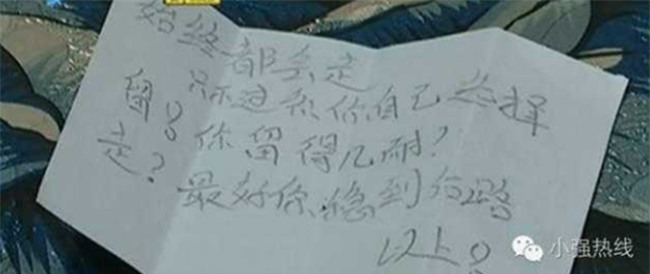 始终都会走
只不过系你自己选择
留? 你留得几耐?
走? 最好你稳到 路
以上?
小强热线